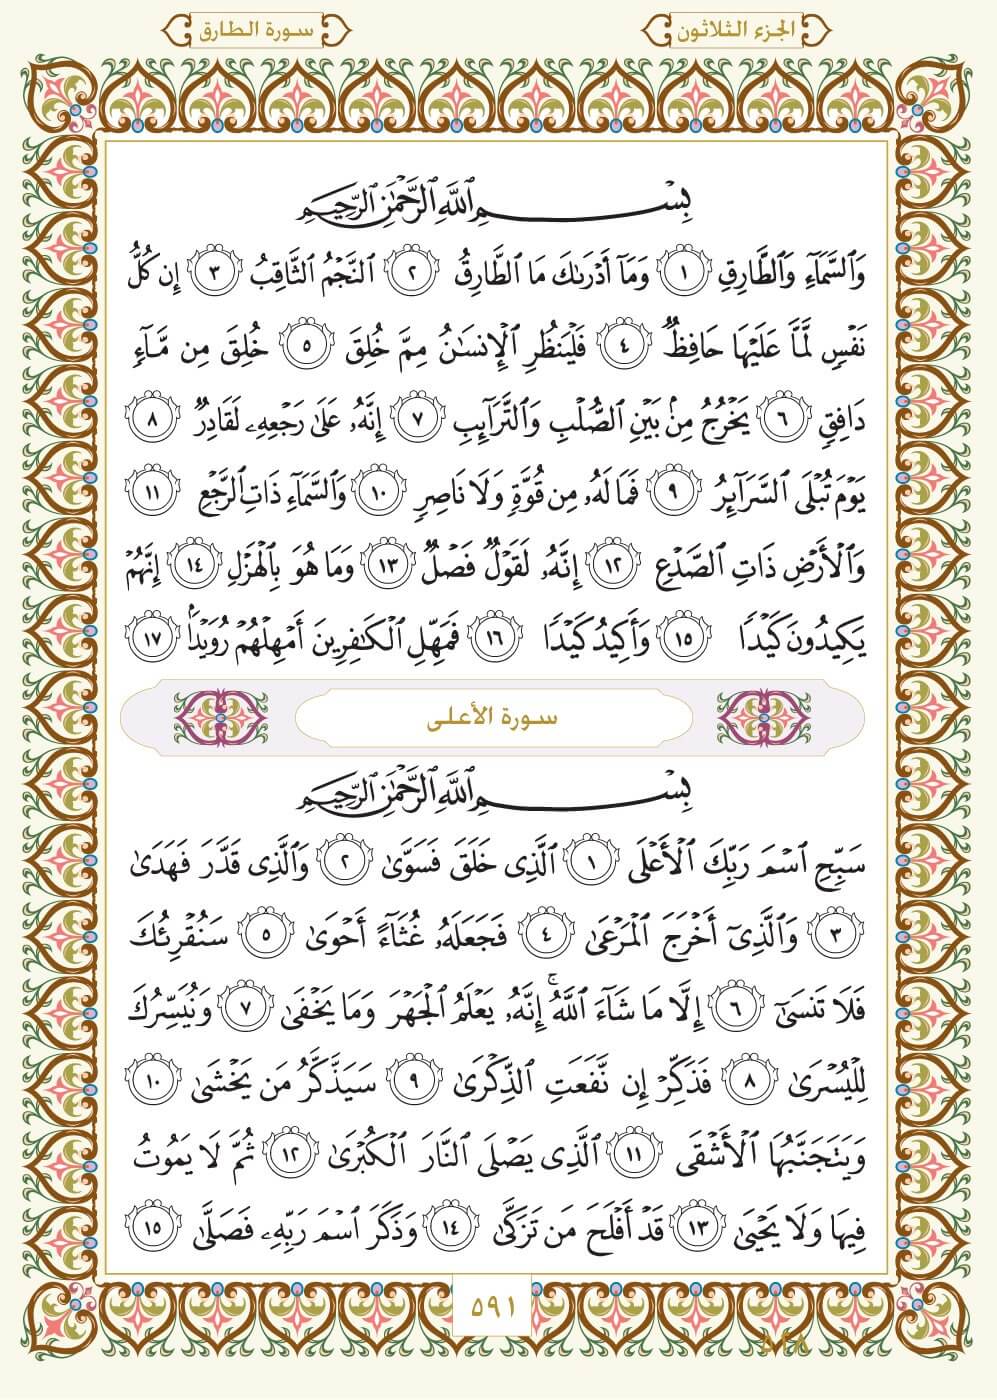 الجزء الثلاثون
سورة الطارق
بِسْمِ اللَّهِ الرَّحْمَٰنِ الرَّحِيمِ
وَالسَّمَآءِ وَالطَّارِقِ ١ وَمَآ أَدْرَىٰكَ مَا الطَّارِقُ ٢ النَّجْمُ الثَّاقِبُ ٣ إِن كُلُّ
نَفْسٍ لَّمَّا عَلَيْهَا حَافِظٌ ٤ فَلْيَنظُرِ الْإِنسَٰنُ مِمَّ خُلِقَ ٥ خُلِقَ مِن مَّآءٍ
دَافِقٍ ٦ يَخْرُجُ مِنۢ بَيْنِ الصُّلْبِ وَالتَّرَآئِبِ ٧ إِنَّهُۥ عَلَىٰ رَجْعِهِۦ لَقَادِرٌ ٨
يَوْمَ تُبْلَى السَّرَآئِرُ ٩ فَمَا لَهُۥ مِن قُوَّةٍ وَلَا نَاصِرٍ ١٠ وَالسَّمَآءِ ذَاتِ الرَّجْعِ ١١
وَالْأَرْضِ ذَاتِ الصَّدْعِ ١٢ إِنَّهُۥ لَقَوْلٌ فَصْلٌ ١٣ وَمَا هُوَ بِالْهَزْلِ ١٤ إِنَّهُمْ
يَكِيدُونَ كَيْدًا ١٥ وَأَكِيدُ كَيْدًا ١٦ فَمَهِّلِ الْكَٰفِرِينَ أَمْهِلْهُمْ رُوَيْدًۢا ١٧
سورة الأعلى
بِسْمِ اللَّهِ الرَّحْمَٰنِ الرَّحِيمِ
سَبِّحِ اسْمَ رَبِّكَ الْأَعْلَى ١ الَّذِى خَلَقَ فَسَوَّىٰ ٢ وَالَّذِى قَدَّرَ فَهَدَىٰ
٣ وَالَّذِىٓ أَخْرَجَ الْمَرْعَىٰ ٤ فَجَعَلَهُۥ غُثَآءً أَحْوَىٰ ٥ سَنُقْرِئُكَ
فَلَا تَنسَىٰٓ ٦ إِلَّا مَا شَآءَ اللَّهُ ۚ إِنَّهُۥ يَعْلَمُ الْجَهْرَ وَمَا يَخْفَىٰ ٧ وَنُيَسِّرُكَ
لِلْيُسْرَىٰ ٨ فَذَكِّرْ إِن نَّفَعَتِ الذِّكْرَىٰ ٩ سَيَذَّكَّرُ مَن يَخْشَىٰ ١٠
وَيَتَجَنَّبُهَا الْأَشْقَى ١١ الَّذِى يَصْلَى النَّارَ الْكُبْرَىٰ ١٢ ثُمَّ لَا يَمُوتُ
فِيهَا وَلَا يَحْيَىٰ ١٣ قَدْ أَفْلَحَ مَن تَزَكَّىٰ ١٤ وَذَكَرَ اسْمَ رَبِّهِۦ فَصَلَّىٰ ١٥
٥٩١